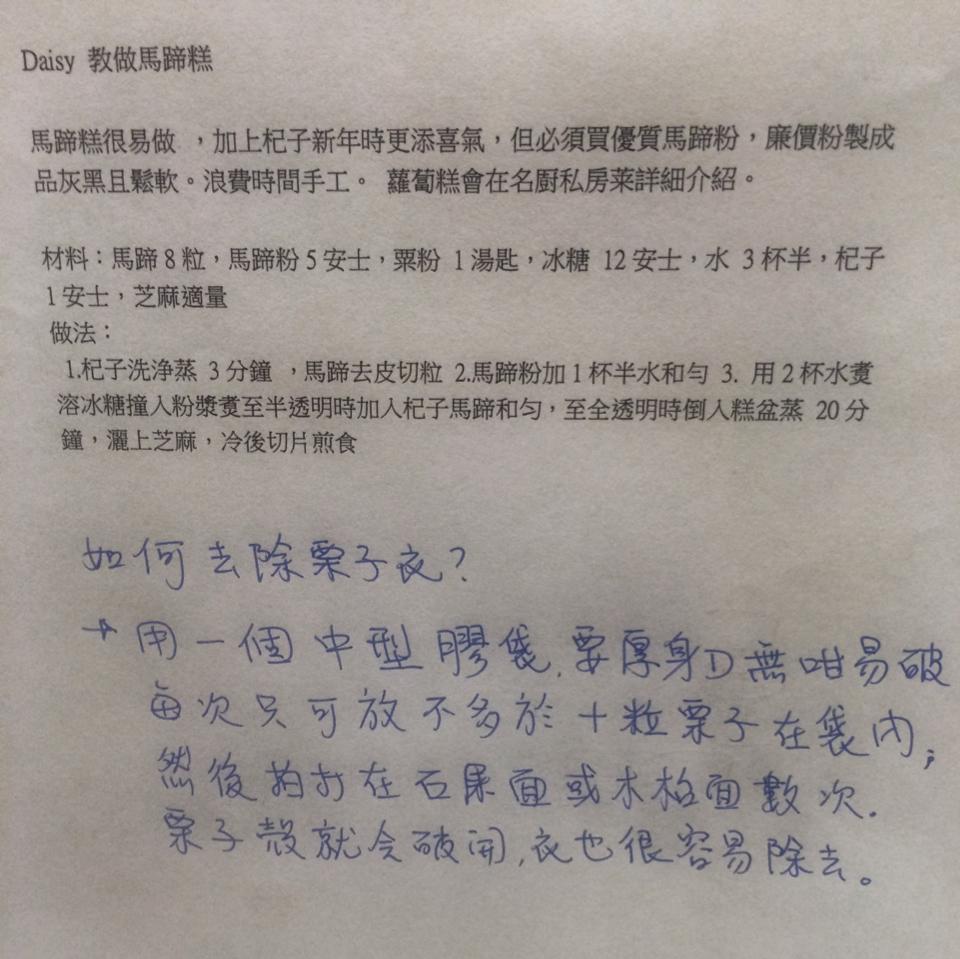 Daisy 教做馬蹄糕
馬蹄糕很易做 ，加上杞子新年時更添喜氣，但必須買優質馬蹄粉，廉價粉製成
品灰黑且鬆軟。浪費時間手工。 蘿蔔糕會在名廚私房菜詳細介紹。
材料：馬蹄 8 粒，馬蹄粉 5 安士，粟粉 1 湯匙，冰糖 12 安士，水 3 杯半，杞子
1 安士，芝麻適量
做法：
1.杞子洗淨蒸 3 分鐘 ，馬蹄去皮切粒 2.馬蹄粉加 1 杯半水和勻 3. 用 2 杯水煑
溶冰糖撞入粉漿煑至半透明時加入杞子馬蹄和勻，至全透明時倒入糕盆蒸 20 分
鐘，灑上芝麻，冷後切片煎食
如何去除栗子衣？
→ 用一個中型膠袋，要厚身D無咁易破
每次只可放不多於十粒栗子在袋內；
然後拍打在石屎面或木枱面數次．
栗子殼就会破開，衣也很容易除去。